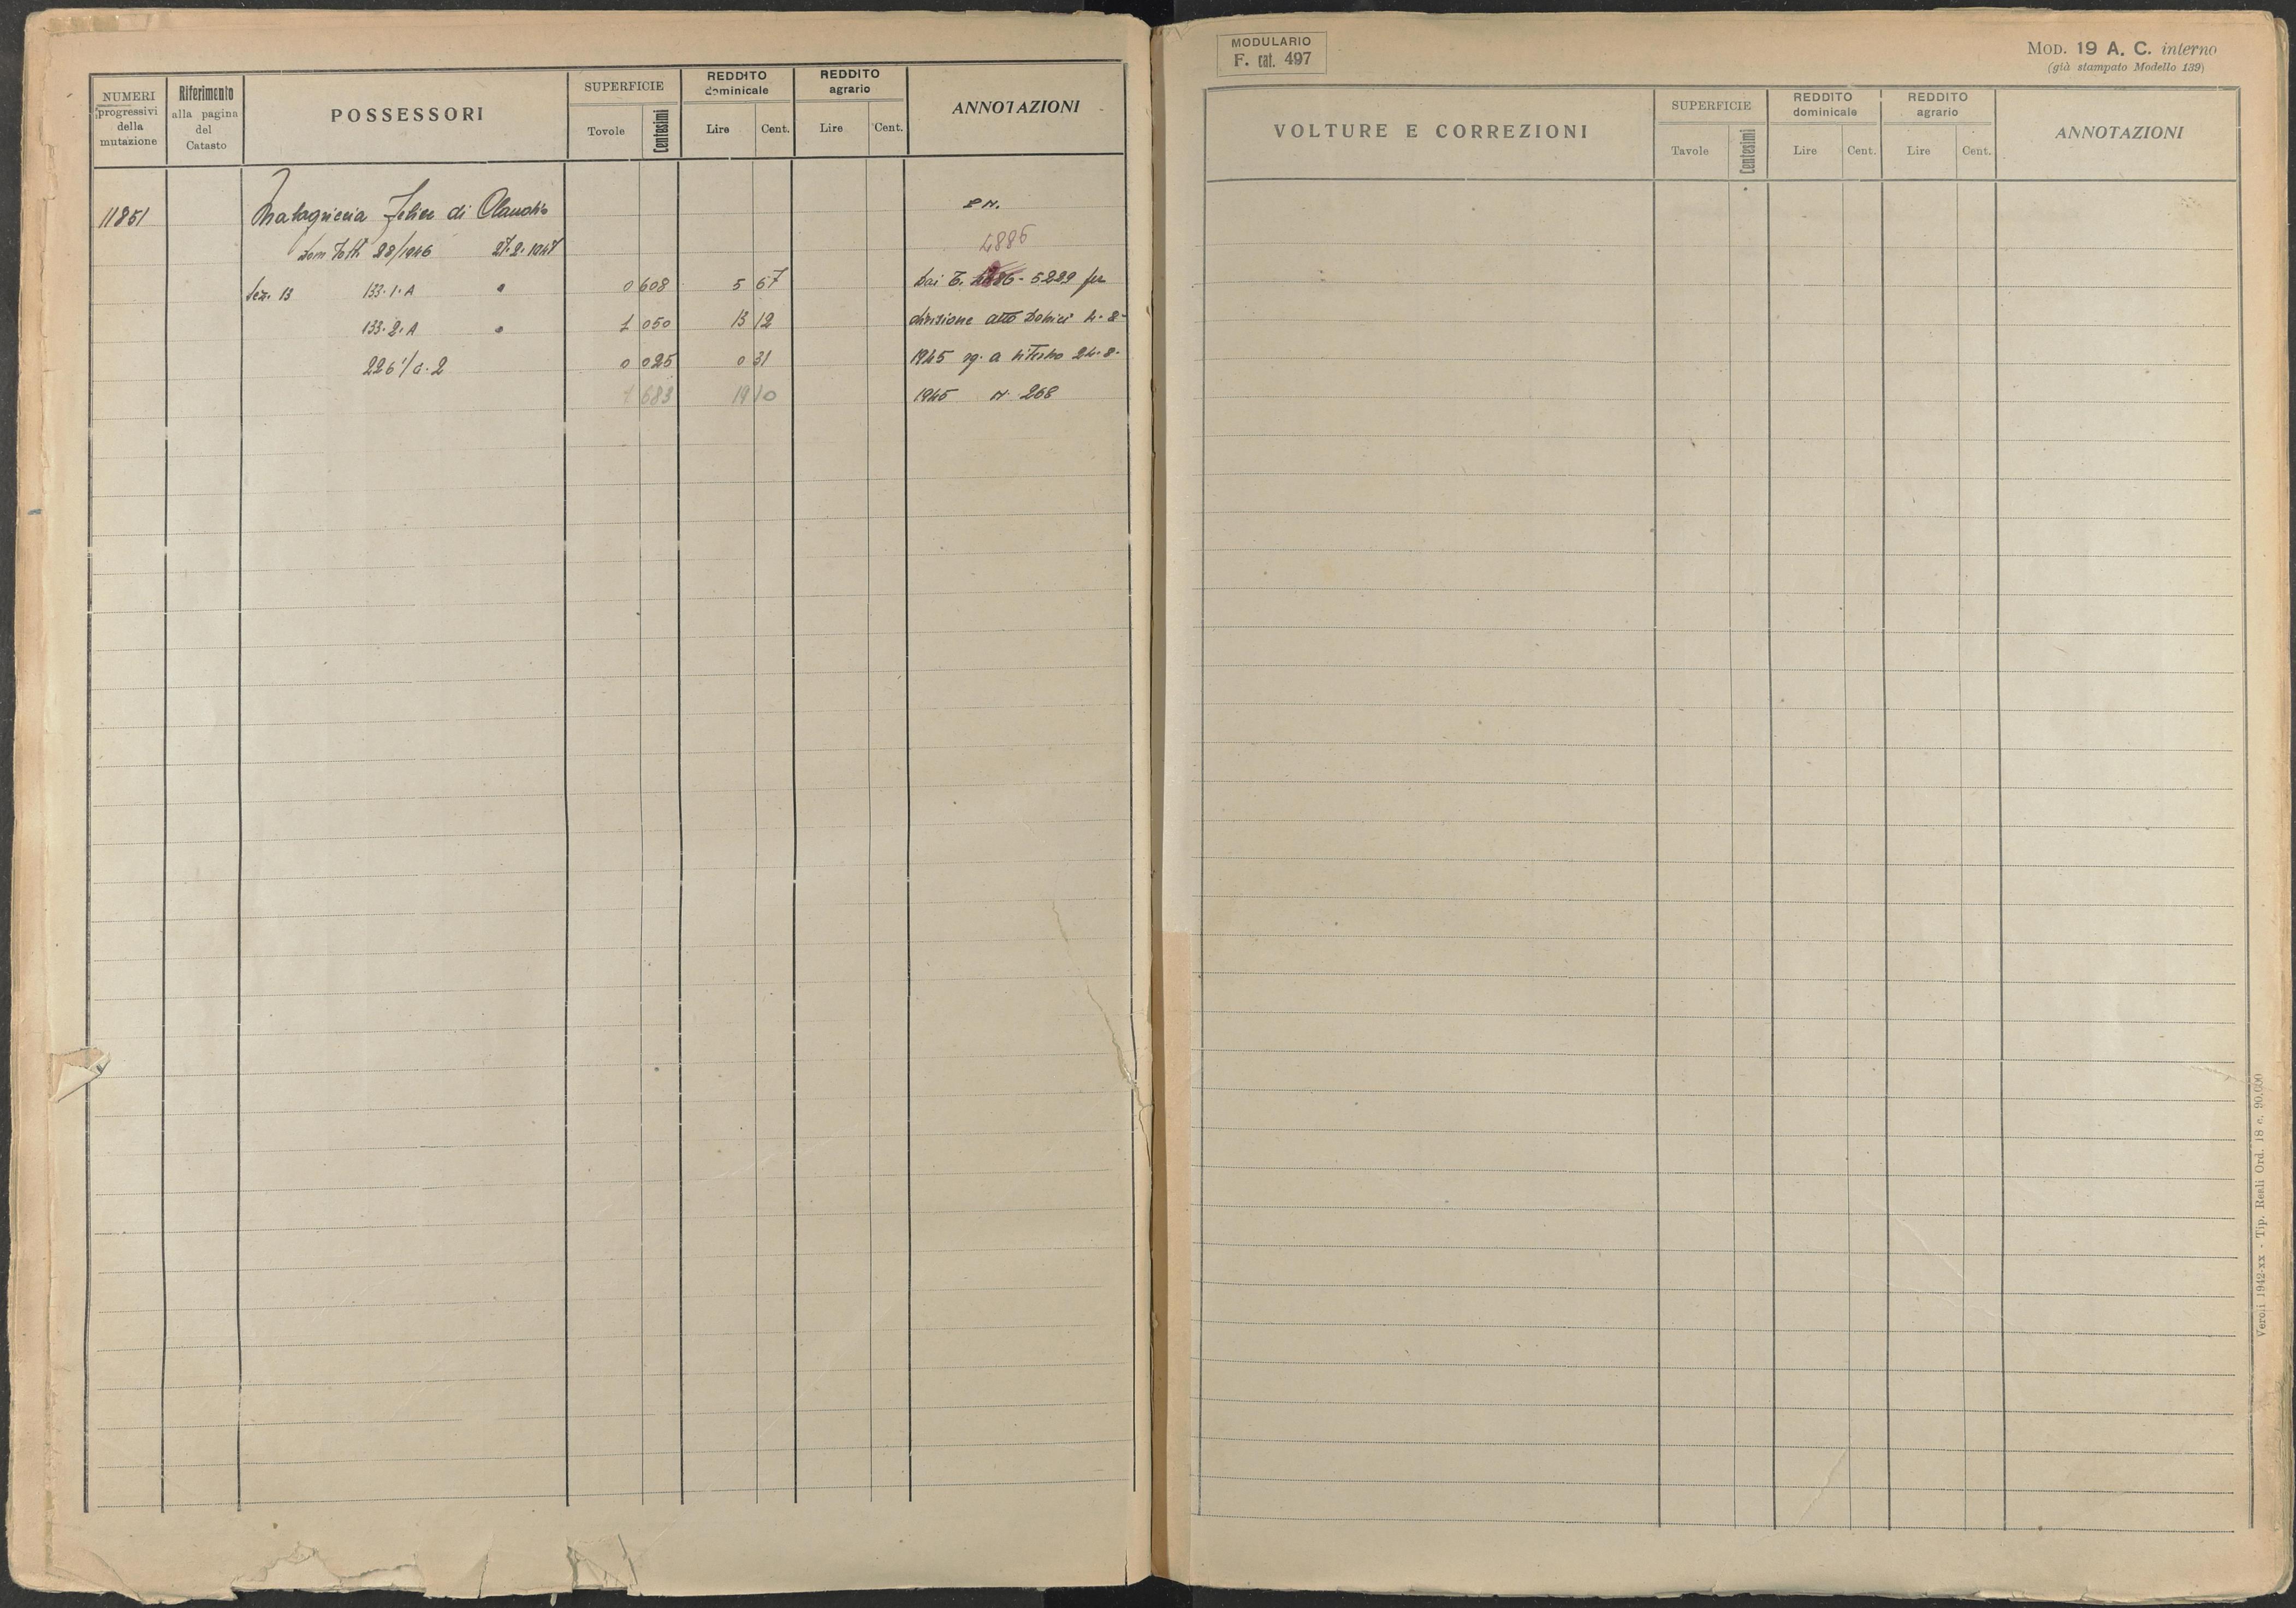 NUMERI progressivi della mutazione
Riferimento alla pagina del Catasto
POSSESSORI
SUPERFICIE
Tavole Centesimi
REDDITO dominicale
Lire Cent.
REDDITO agrario
Lire Cent.
ANNOTAZIONI
11851 Malagriccia Felice di Claudio P N.
28/1946 27.2.1947 4886
Sez. 13 133.1.A " 0 608 5 67 Dai T. 5229 per
133.2.A " 1 050 13 12 divisione atto 4-8-
226 1/a.2 0 025 0 31 1945 rg. a Viterbo 24.8.
1 683 19 10 1945 N. 268
MODULARIO
F. cat. 497
MOD. 19 A. C. interno
(già stampato Modello 139)
VOLTURE E CORREZIONI
SUPERFICIE
Tavole Centesimi
REDDITO dominicale
Lire Cent.
REDDITO agrario
Lire Cent.
ANNOTAZIONI
Veroli 1942-xx - Tip. Reali Ord. 18 c. 90.000